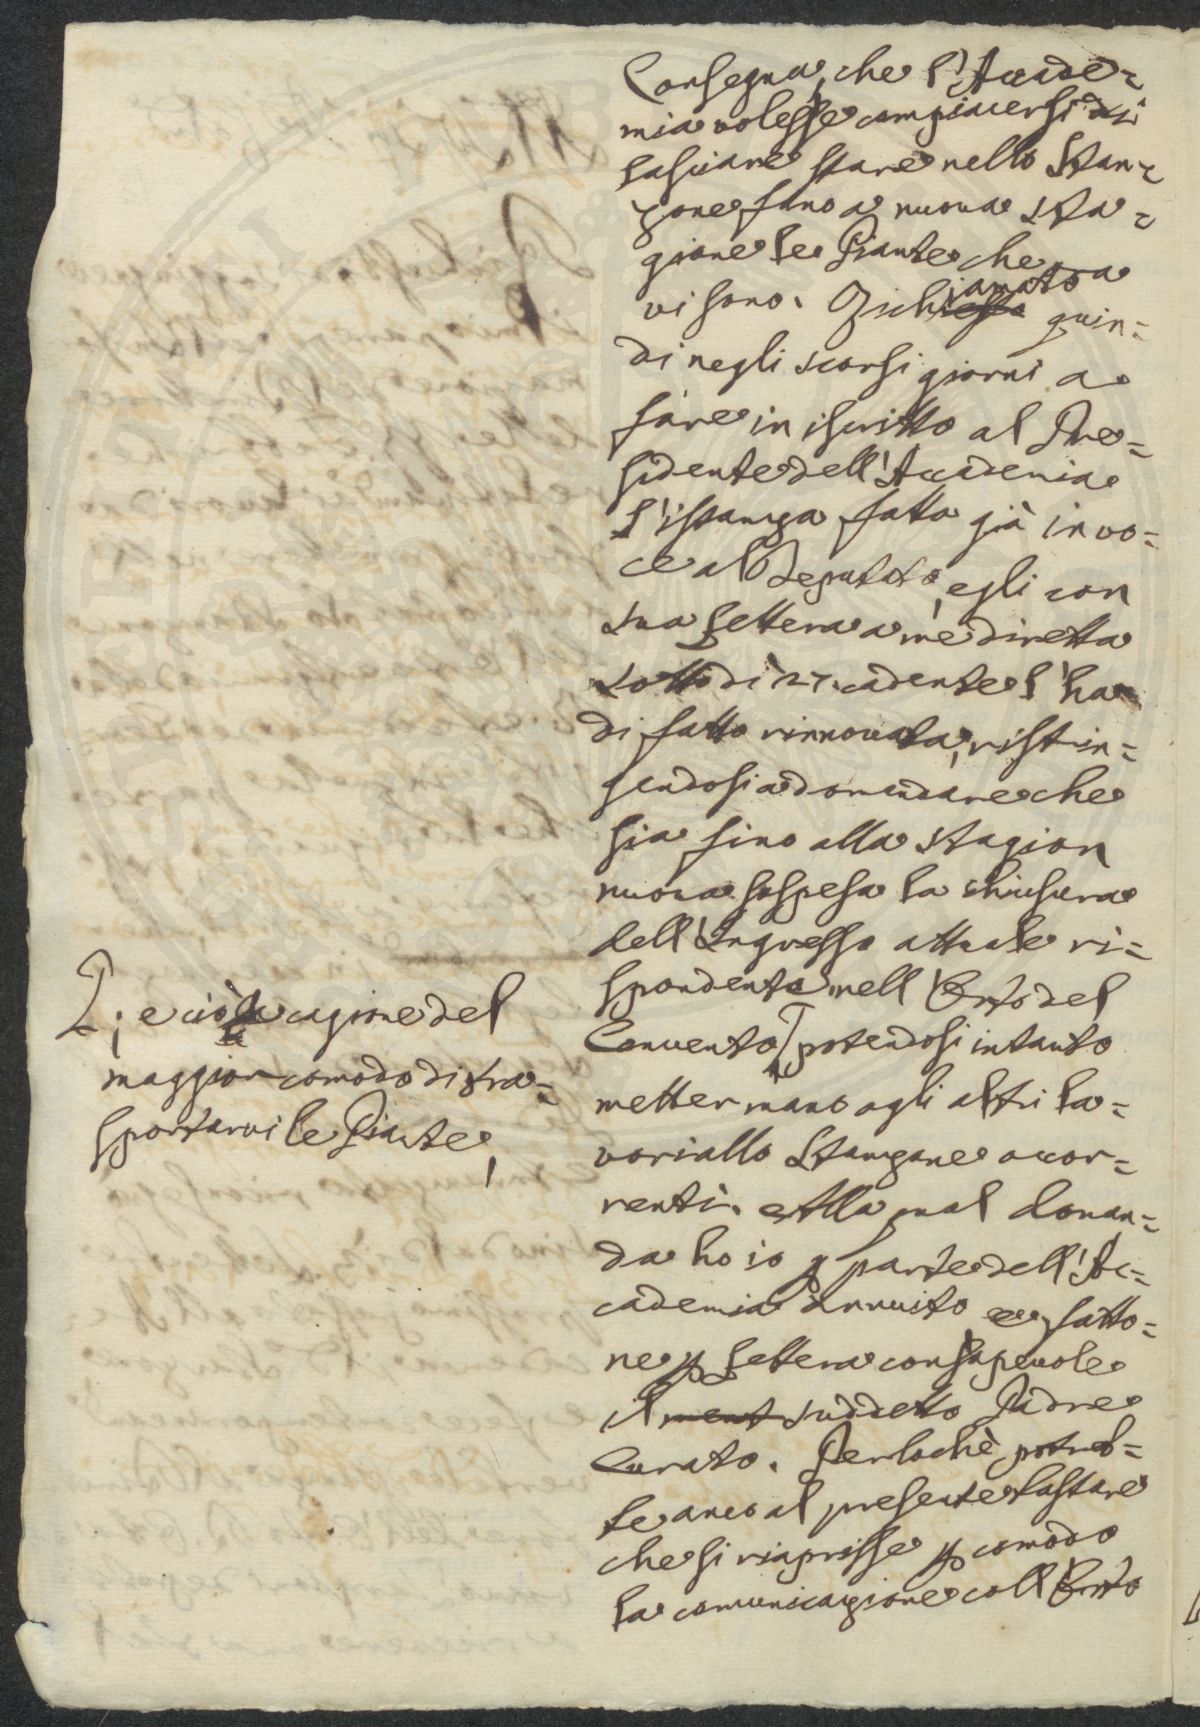 Consegna, che l'Accade=
mia volesse compiacersi di
lasciare stare nello Stan=
zone fino a nuova sta=
gione le Piante che ora
vi sono. Richiamato quin=
di negli scorsi giorni a
fare in iscritto al Pre=
sidente dell'Accademia
l'istanza fatta già in vo=
ce al Deputato, egli con
sua lettera a me diretta
sotto dì 27. cadente l'ha
di fatto rinnovata, ristrin=
gendosi a domandare che
sia fino alla stagion
nuova sospesa la chiusura
dell'Ingresso attuale ri=
spondente nell'Orto del
Convento, potendosi intanto
metter mano agli altri la=
vori allo Stanzone occor=
renti. Alla qual doman=
da ho io p parte dell'Ac=
cademia annuito, e fatto=
ne p lettera consapevole
il ment suddetto Padre
Curato. Perlochè potreb=
be anco al presente bastare
che si riaprisse p comodo
la comunicazione coll'Orto
; e ciò a cagione del
maggior comodo di tra=
sportarvi le Piante,